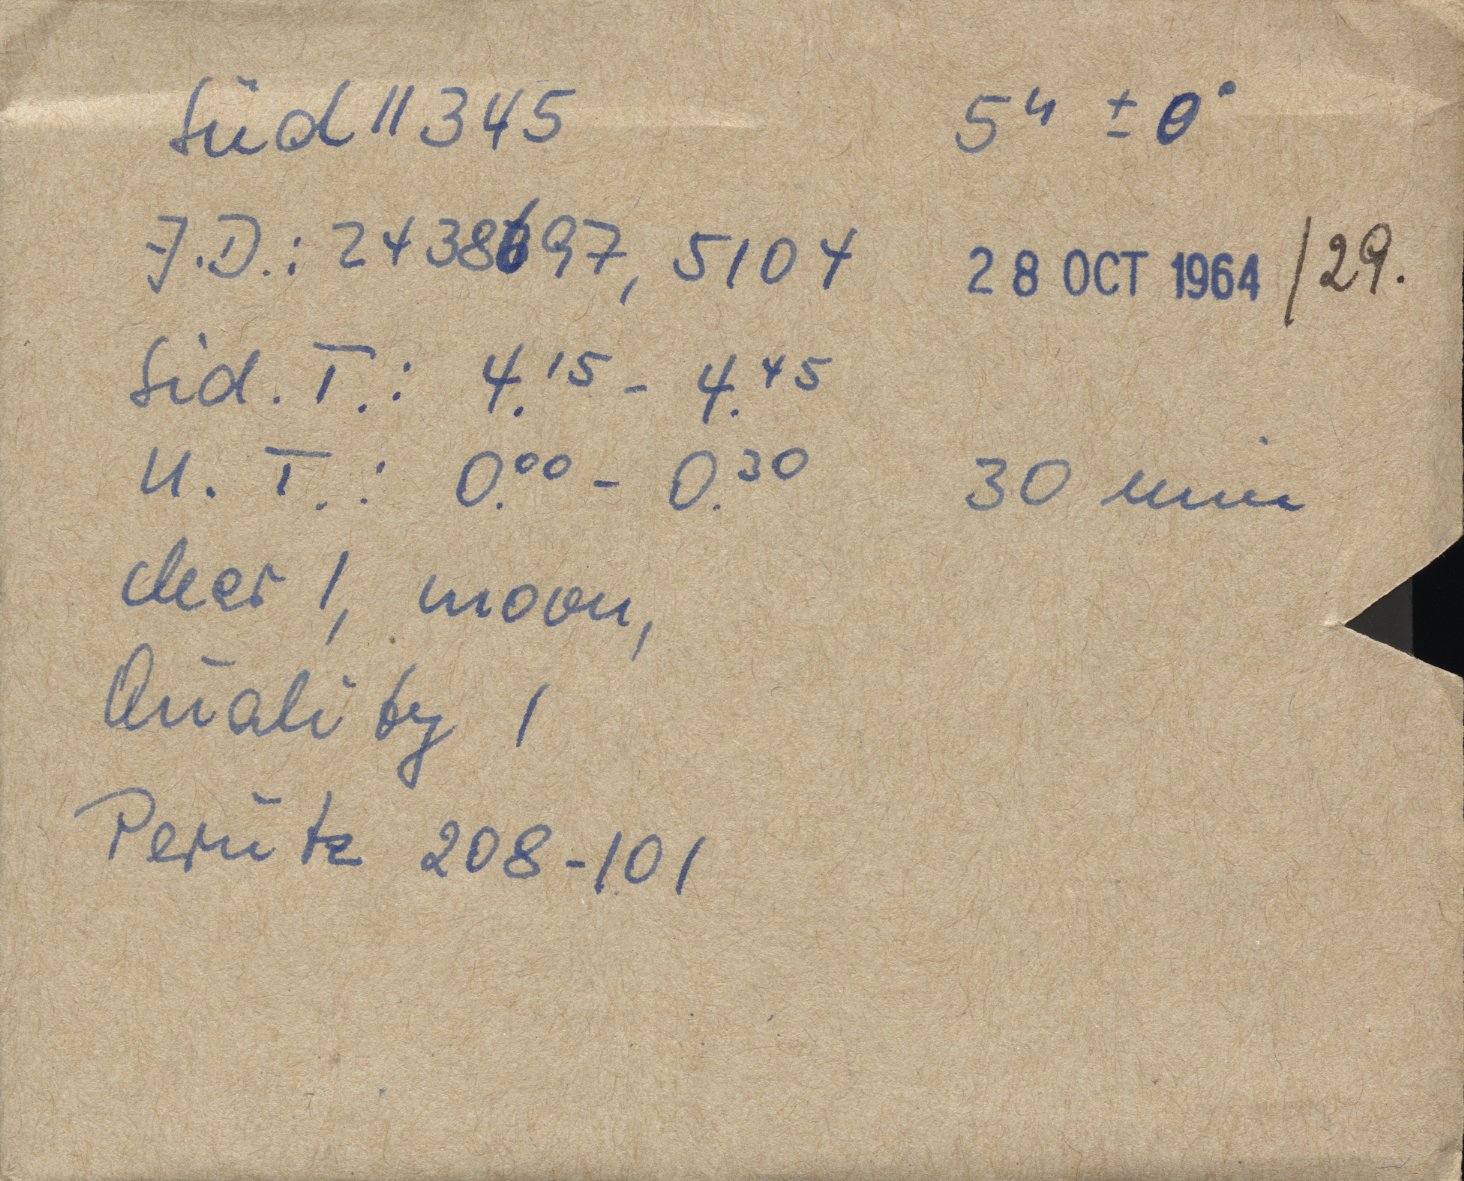 Süd II 345 5ʰ ± 0°
J.D.: 2438697,5104 28 OCT 1964 /29.
Sid. T.: 4.¹⁵ - 4.⁴⁵
U. T.: 0.⁰⁰ - 0.³⁰ 30 min
clear 1, moon,
Quality 1
Perutz 208-101